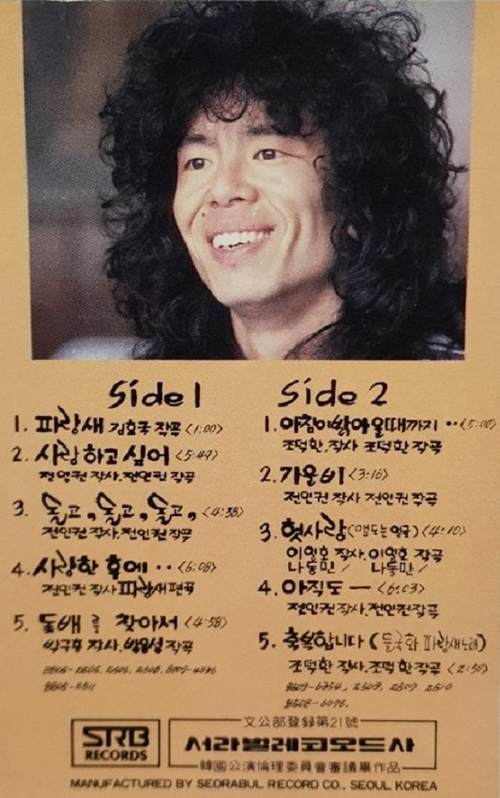 Side 1
1. 파랑새 김효국 작곡 <1:00>
2. 사랑하고 싶어 <5:49>
전인권 작사. 전인권 작곡
3. 돌고, 돌고, 돌고, <4:38>
전인권 작사. 전인권 작곡
4. 사랑한 후에‥ <6:08>
전인권 작사 파랑새 편곡
5. 돛배를 찾아서 <4:58>
작사. 작곡
Side 2
1. 아침이 밝아올 때까지‥ <5:00>
조덕환. 작사 조덕환 작곡
2. 가운비 <3:16>
전인권 작사 전인권 작곡
3. 헛사랑 <4:10>
이영호 작사. 이영호 작곡
4. 아직도 — <6:03>
전인권 작사. 전인권 작곡
5. 축복합니다 (들국화, 파랑새 노래)
조덕환 작사. 조덕환 작곡 <2:50>
SRB
RECORDS
文公部登録第21號
서라벌레코오드사
韓國公演倫理委員會審議畢作品
MANUFACTURED BY SEORABUL RECORD CO., SEOUL KOREA